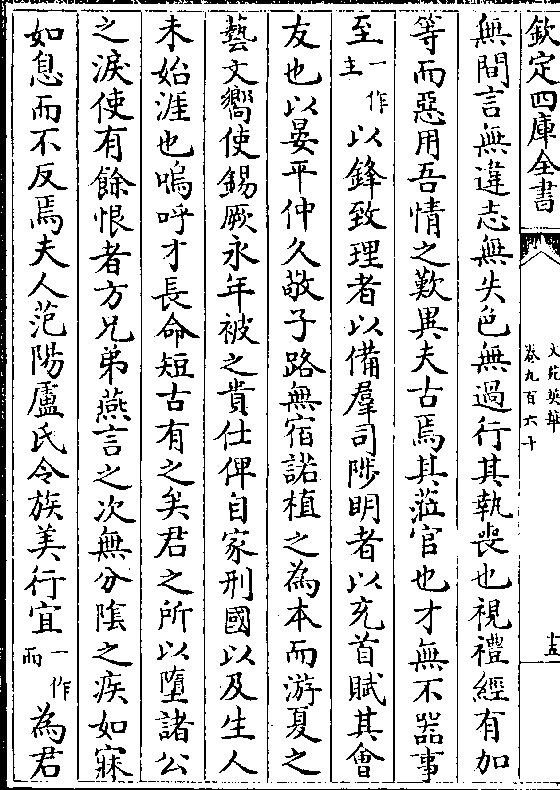 欽定四庫全書
文苑英華
卷九百六十
十五
無間言無違志無失色無過行其執喪也視禮經有加
等而惡用吾情之歎異夫古焉其蒞官也才無不器事
至一作主以鋒致理者以備羣司陟明者以充首賦其會
友也以晏平仲久敬子路無宿諾植之為本而游夏之
藝文嚮使錫厥永年被之貴仕俾自家刑國以及生人
未始涯也嗚呼才長命短古有之矣君之所以墮諸公
之淚使有餘恨者方兄弟燕言之次無分陰之疾如寐
如息而不反焉夫人范陽盧氏令族美行宜一作而為君